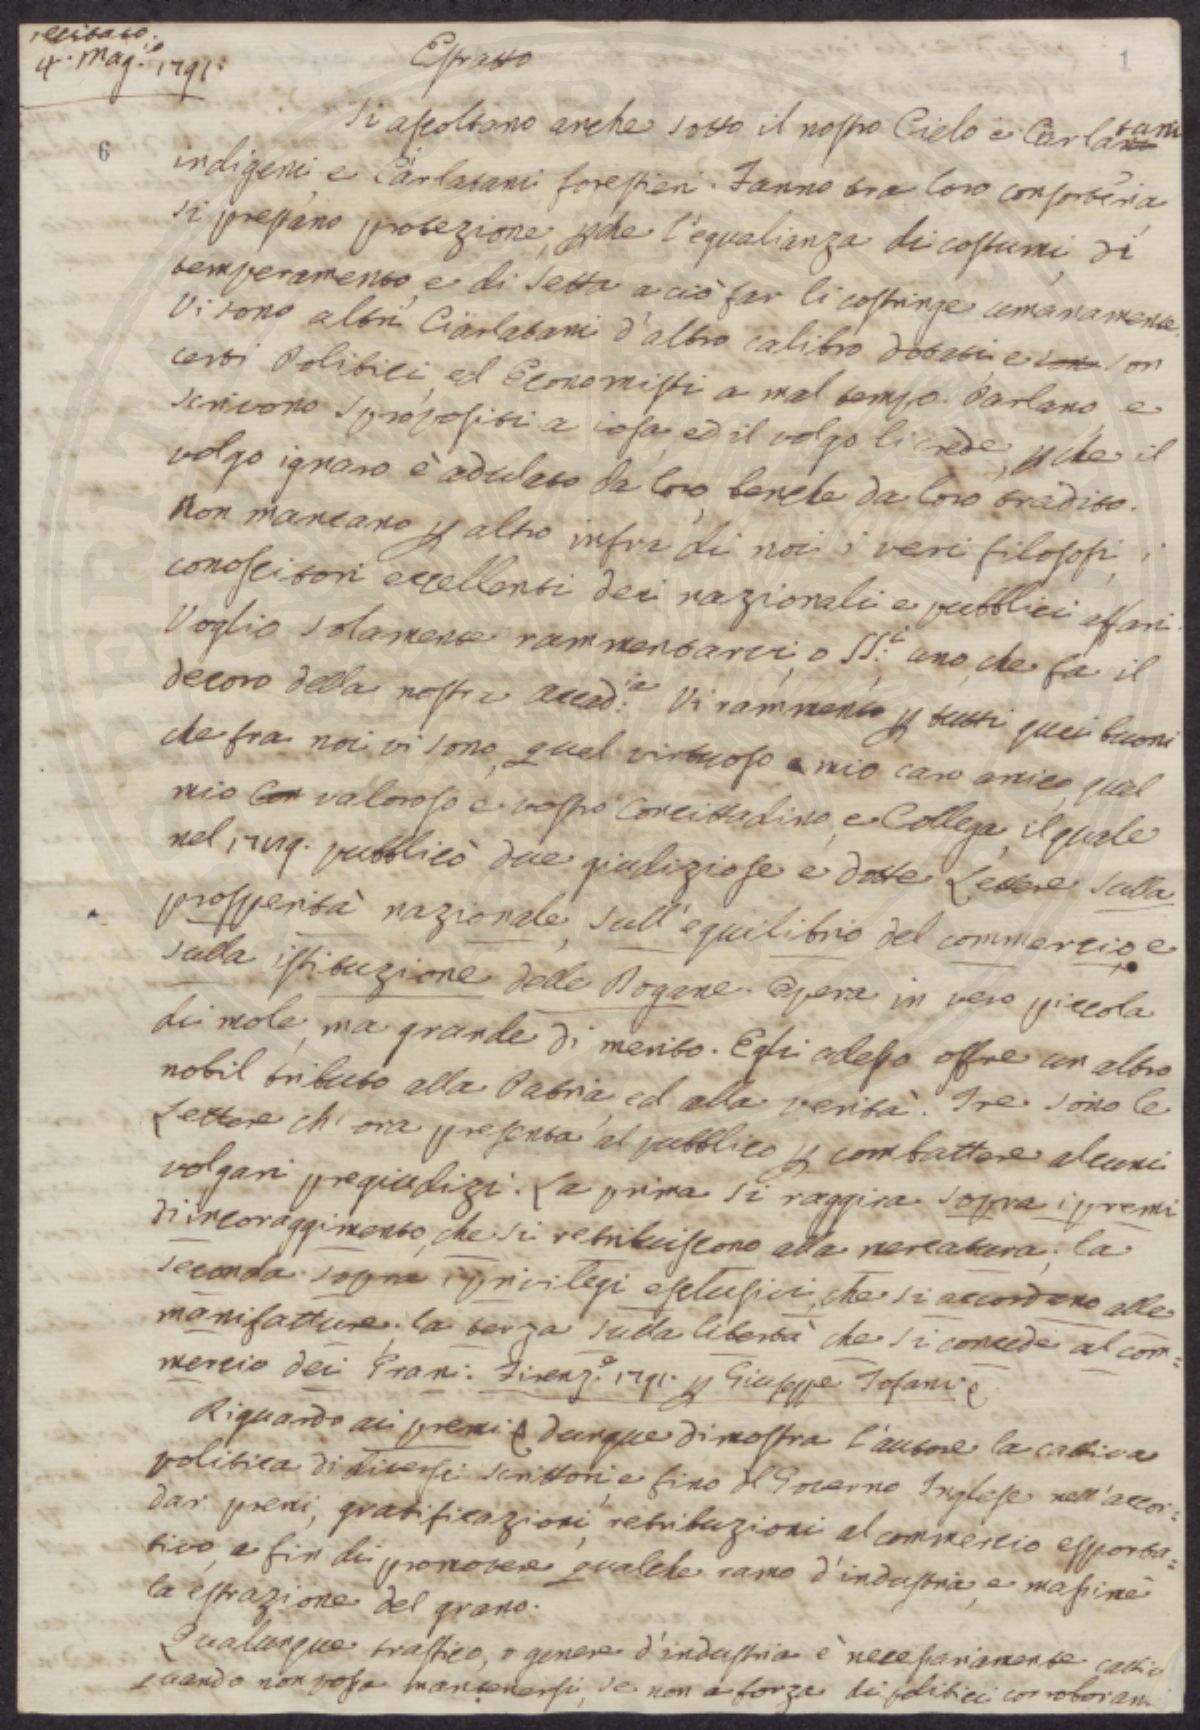 recitato.
4. Mag.io 1791.
Estratto
1
6
Si ascoltano anche sotto il nostro Cielo e Ciarlatani
indigeni, e Ciarlatani forestieri. Fanno tra loro consorteria,
si prestano protezione, pche l'egualianza di costumi, di
temperamento, e di setta a ciò far li costringe umanamente.
Vi sono altri Ciarlatani d'altro calibro dotati, e son
certi Politici, ed Economisti a mal tempo. Parlano e
scrivono spropositi a iosa, ed il volgo li crede, pche il
volgo ignaro è adulato da loro, benche da loro tradito.
Non mancano p altro infra di noi i veri filosofi, i
conoscitori eccellenti dei nazionali e pubblici affari.
Voglio solamente rammentarvi, o SS.i uno, che fa il
decoro della nostra Accad.ia Vi rammento p tutti quei buoni
che fra noi vi sono, quel virtuoso e mio caro amico, qual
mio valoroso e vostro Concittadino, e Collega, il quale
nel pubblicò due giudiziose e dotte Lettere sulla
prosperità nazionale, sull'equilibrio del commercio, e
sulla istituzione delle Dogane. Opera in vero piccola
di mole, ma grande di merito. Egli adesso offre un altro
nobil tributo alla Patria, ed alla verità. Tre sono le
Lettere ch'ora presenta al pubblico p combattere alcuni
volgari pregiudizi. La prima si raggira sopra i premi
di incoraggimento, che si retribuiscono alla mercatura; la
seconda sopra i privilegi esclusivi, che si accordano alle
manifatture; la terza sulla libertà che si concede al com=
mercio dei Grani. Firenze 1791. p Giuseppe Tofani
Riguardo ai premi dunque dimostra l'autore la cattiva
politica di diversi scrittori, e fino del Governo Inglese nell'accor=
dar premi, gratificazioni, retribuzioni al commercio esporta=
tivo, a fin di promovere qualche ramo d'industria, e massime
la estrazione del grano.
Qualunque traffico, o genere d'industria è necessariamente cattivo
quando non possa mantenersi, se non a forza di politici corroboranti